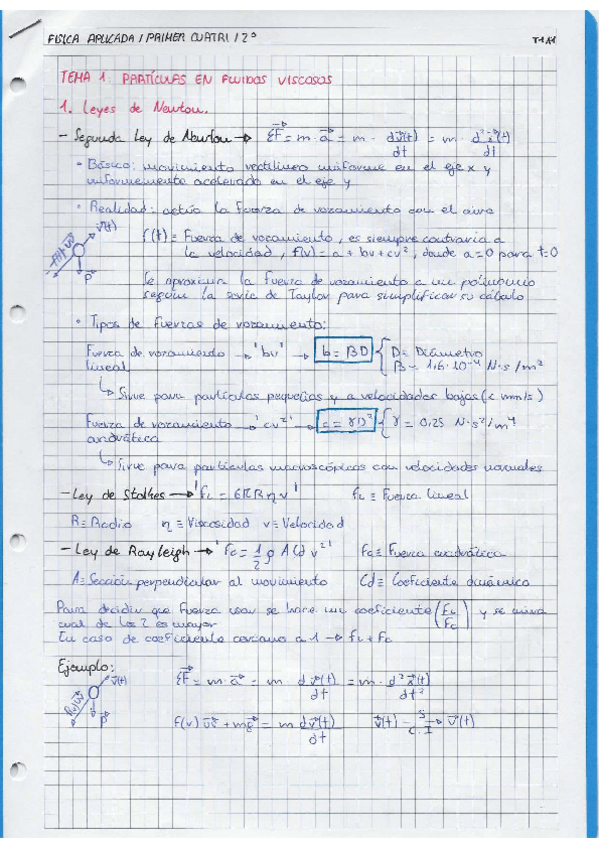 FISICA APLICADA / PRIMER CUATRI / 2º T1A1
TEMA 1. PARTÍCULAS EN FLUIDOS VISCOSOS
1. Leyes de Newton.
- Segunda Ley de Newton → ΣF = m·a = m · dv(t)/dt = m · d²x(t)/dt
• Básico: movimiento rectilíneo uniforme en el eje x y
uniformemente acelerado en el eje y
• Realidad: actúa la fuerza de rozamiento con el aire
v(t)
P
f(t) = Fuerza de rozamiento, es siempre contraria a
la velocidad, f(v) = a + bv + cv², donde a=0 para t=0
Se aproxima la fuerza de rozamiento a un polinomio
según la serie de Taylor para simplificar su cálculo
• Tipos de fuerzas de rozamiento:
Fuerza de rozamiento → 'bv' → b = BD { D = Diámetro
lineal B = 1,6·10⁻⁴ N·s/m²
↳ Sirve para partículas pequeñas y a velocidades bajas (< mm/s)
Fuerza de rozamiento → 'cv²' → c = γD² { γ = 0,25 N·s²/m⁴
cuadrática
↳ Sirve para partículas macroscópicas con velocidades usuales
- Ley de Stolkes → 'fL = 6πRηv' fL ≡ Fuerza lineal
R ≡ Radio η ≡ Viscosidad v ≡ Velocidad
- Ley de Rayleigh → 'Fc = 1/2 ρ A Cd v²' Fc ≡ Fuerza cuadrática
A = Sección perpendicular al movimiento Cd ≡ Coeficiente dinámico
Para decidir que fuerza usar se hace un coeficiente (FL/Fc) y se mira
cual de los 2 es mayor
En caso de coeficiente cercano a 1 → fL + Fc
Ejemplo: ΣF = m·a = m dv(t)/dt = m · d²x(t)/dt²
v(t)
P
f(v) + mg = m dv(t)/dt